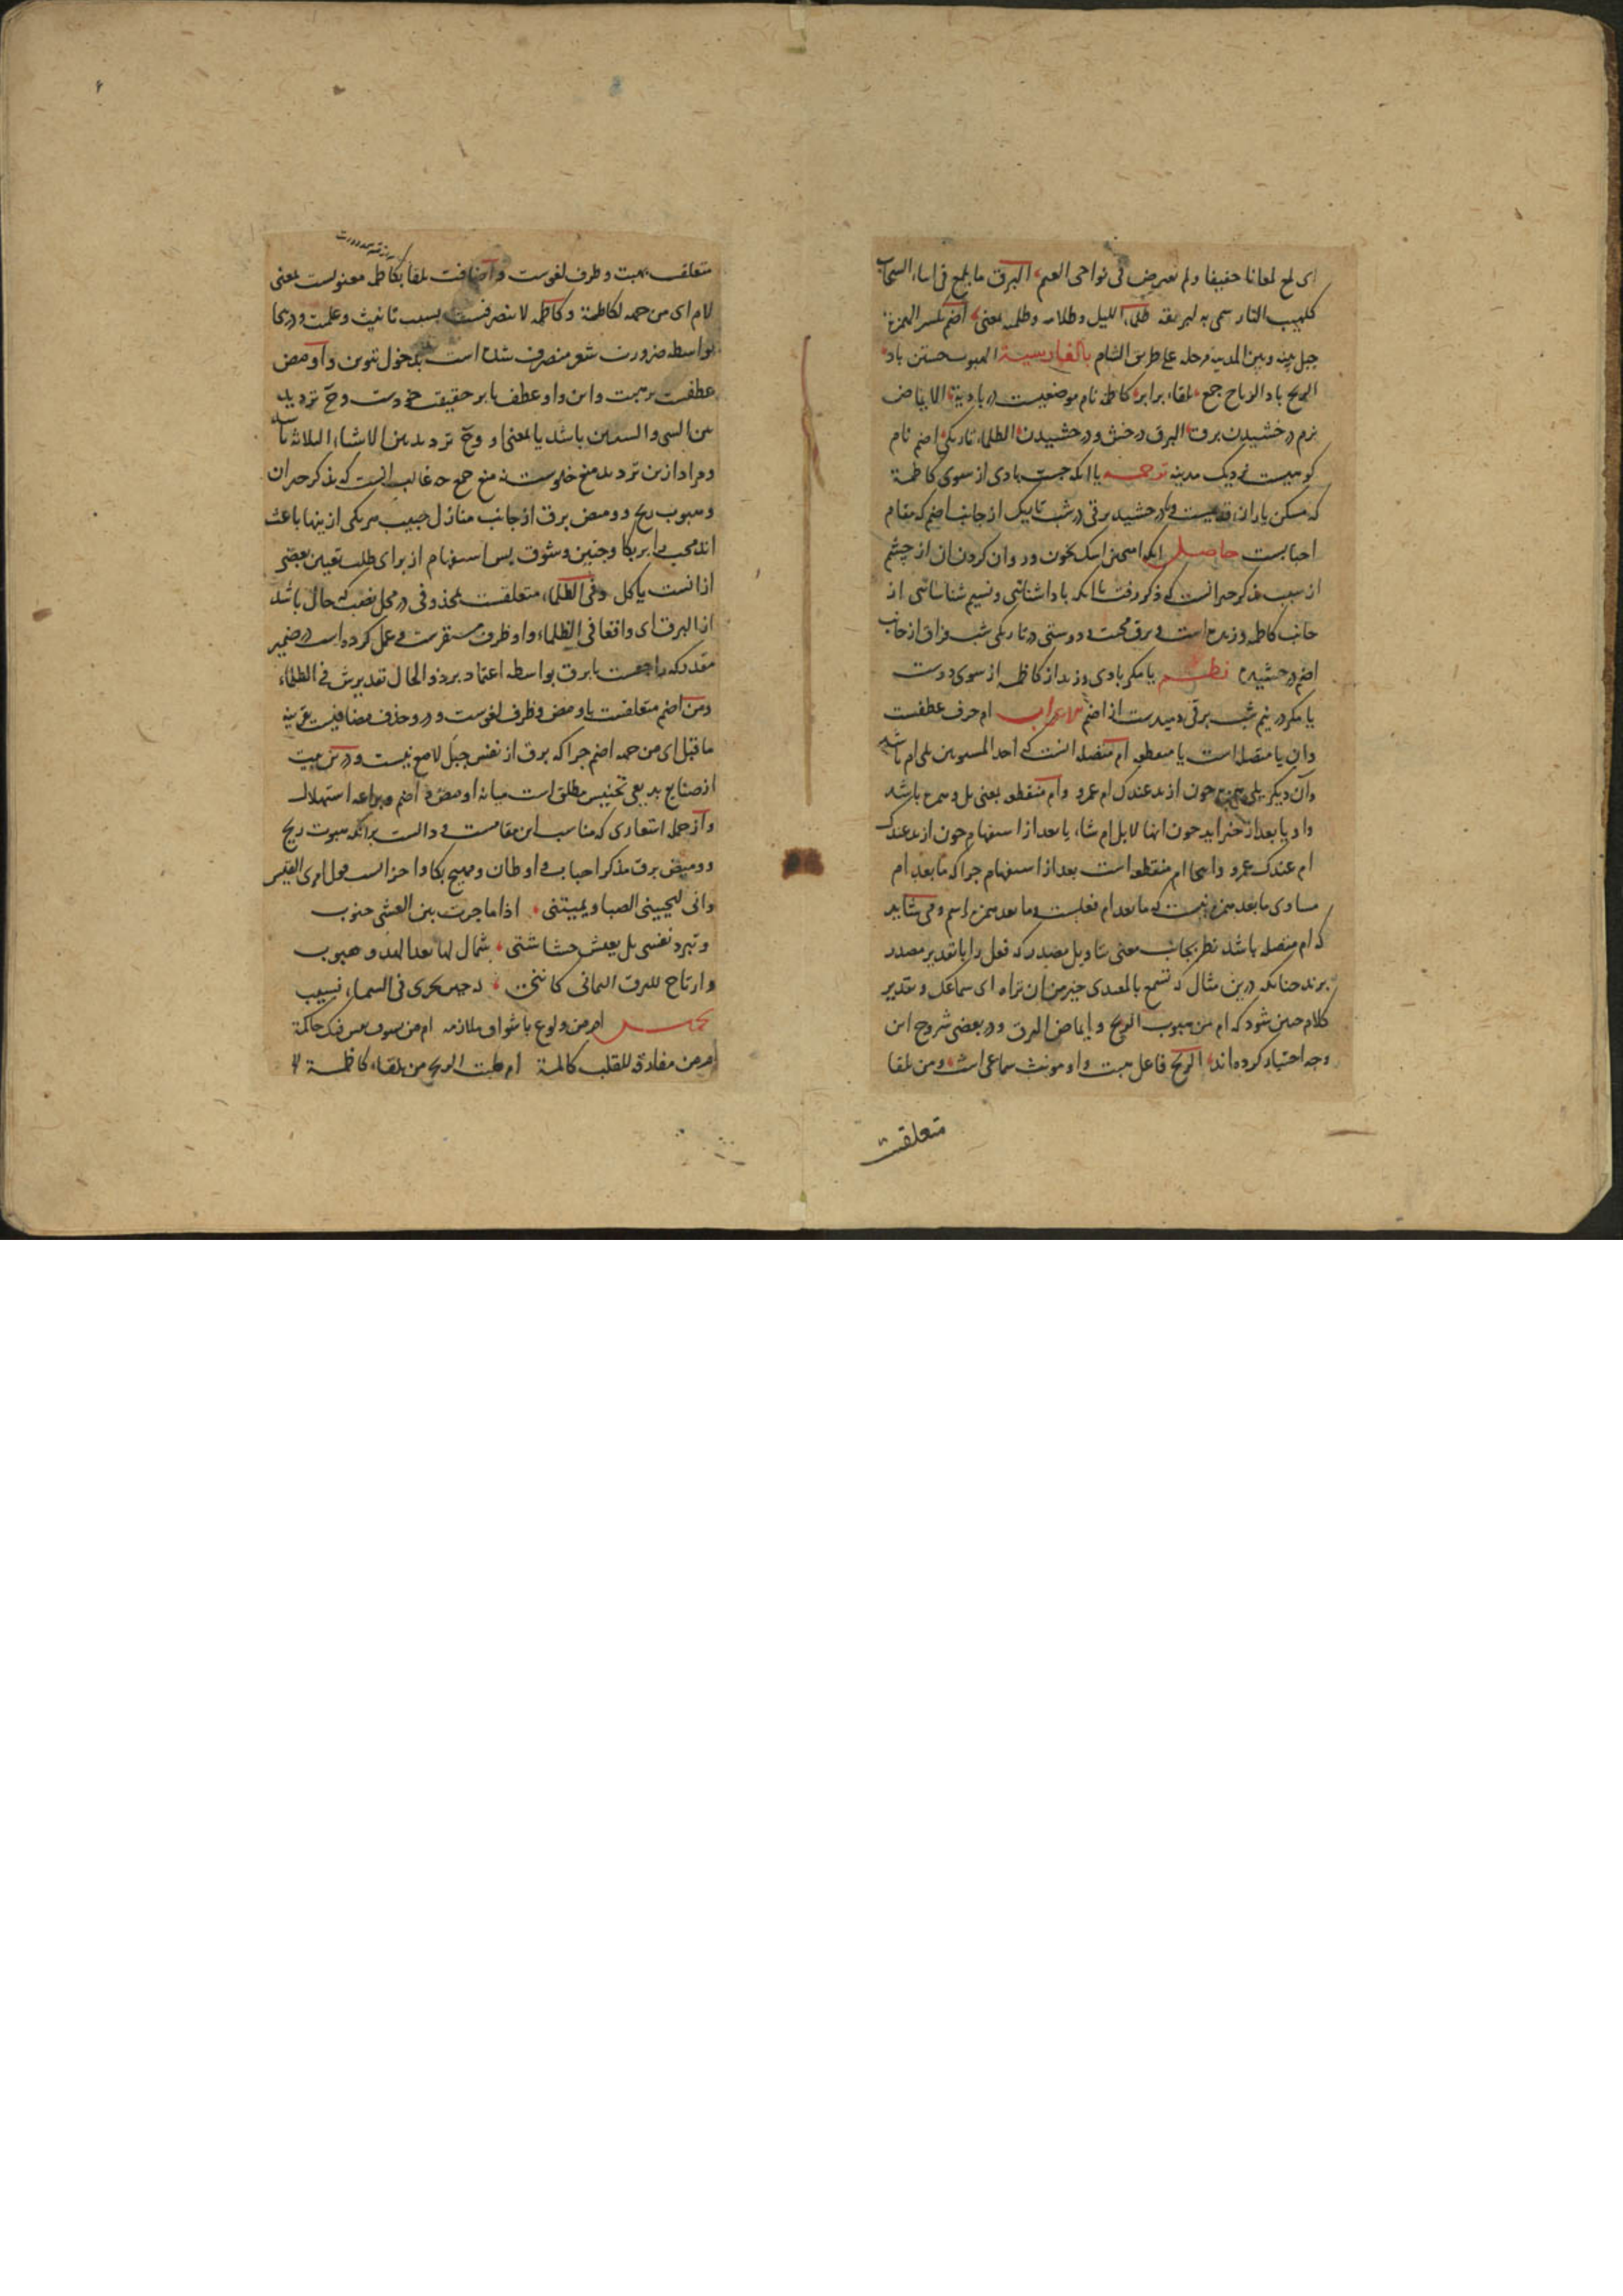 ای لمع لمعانا خفیفا ولم یعرض فی نواحی الغیم البرق ما یلمع فی اثناء السحاب
کلهیب النار سمی به لبریقه ظلماء اللیل وظلامه وظلمته بمعنی اضم بکسر الهمزة
جبل بینه وبین المدینه مرحله علی طریق الشام بالفارسیة الهبوب جستن باد
الریح باد الریاح جمع تلقاء برابر کاظمه نام موضعیست در بادیة الایماض
نرم درخشیدن برق البرق درخش ودرخشیدن الظلماء تاریکی اضم نام
کوهیست نزدیک مدینه ترجمه یا انکه جست بادی از سوی کاظمة
که مسکن یاران قدیمست ویا درخشید برقی در شب تاریک از جانب اضم که مقام
احبابست حاصل انکه امیختن اشک بخون وروان کردن ان از چشم
از سبب تذکر جیرانست که ذکر رفت یا انکه باد اشنائی ونسیم شناسائی از
جانب کاظمه وزیده است وبرق محبت ودوستی در تاریکی شب فراق از جانب
اضم درخشیده نظم یا مکر بادی وزید از کاظمه از سوی دوست
یا مکر در نیم شب برقی دمیدست از اضم الاعراب ام حرف عطفست
وان یا متصله است یا منقطعه ام متصله انست که احد المستویین یلی ام باشد
وان دیکر یلی همزه چون ازید عندک ام عمرو وام منقطعه بمعنی بل وهمزه باشد
واو یا بعد از خبر اید چون انها لابل ام شاء یا بعد از استفهام چون ازید عندک
ام عندک عمرو واینجا ام منقطعه است بعد از استفهام چرا که ما بعد ام
مساوی ما بعد همزه نیست که ما بعد ام فعلیست وما بعد همزه اسم ومی شاید
که ام متصله باشد نظر بجانب معنی بتاویل مصدر که فعل را با تقدیر مصدر
برند چنانکه درین مثال که تسمع بالمعیدی خیر من ان تراه ای سماعک وتقدیر
کلام چنین شود که ام من هبوب الریح وایماض البرق ودر بعضی شروح این
وجه اختیار کرده اند الریح فاعل هبت واو مونث سماعی است ومن تلقا
متعلقست
متعلق بهبت وظرف لغوست واضافت تلقا بکاظمه معنویست بمعنی
لام ای من جهة لکاظمة وکاظمه لا ینصرفست بسبب تانیث وعلمیت ودرینجا
بواسطه ضرورت شعر منصرف شده است بدخول تنوین واومض
عطفست بر هبت واین واو عطف یا بر حقیقت خودست وح تردید
بین الشی والشیئین باشد یا بمعنی او وح تردید بین الاشیاء الثلاثه باشد
ومراد ازین تردید منع خلوست نه منع جمع چه غالب انست که بذکر جیران
وهبوب ریح وومیض برق از جانب منازل حبیب هر یکی ازینها باعث
اند محب را بر بکا وحنین وشوق پس استفهام از برای طلب تعیین بعضی
ازانست یا کل وفی الظلماء متعلقست بمحذوفی در محل نصب که حال باشد
از البرق ای واقعا فی الظلماء واو ظرف مستقرست وعمل کرده است در ضمیر
مقدر که راجعست با برق بواسطه اعتماد بر ذو الحال تقدیرش فی الظلماء
ومن اضم متعلقست باومض وظرف لغوست ودرو حذف مضافیست بقرینه
ما قبل ای من جهة اضم چرا که برق از نفس جبل لامع نیست ودرین بیت
از صنایع بدیعی تجنیس مطلق است میانه اومض واضم وبراعه استهلال
واز جمله اشعاری که مناسب این مقامست ودالست برانکه هبوب ریح
وومیض برق مذکر احباب واوطان ومهیج بکا واحزانست قول امرئ القیس
وانی لیحیینی الصبا ویمیتنی اذا ما جرت بین العشی جنوب
وتبرد نفسی بل یعیش حشاشتی شمال لها بعد الهدو هبوب
وارتاح للبرق الیمانی کاننی له حین یجری فی السماء نسیب
ام من ولوع باشواق ملازمه ام من حاکمة
ام من مفارق للقلب کالمة ام هبت الریح من تلقاء کاظمة